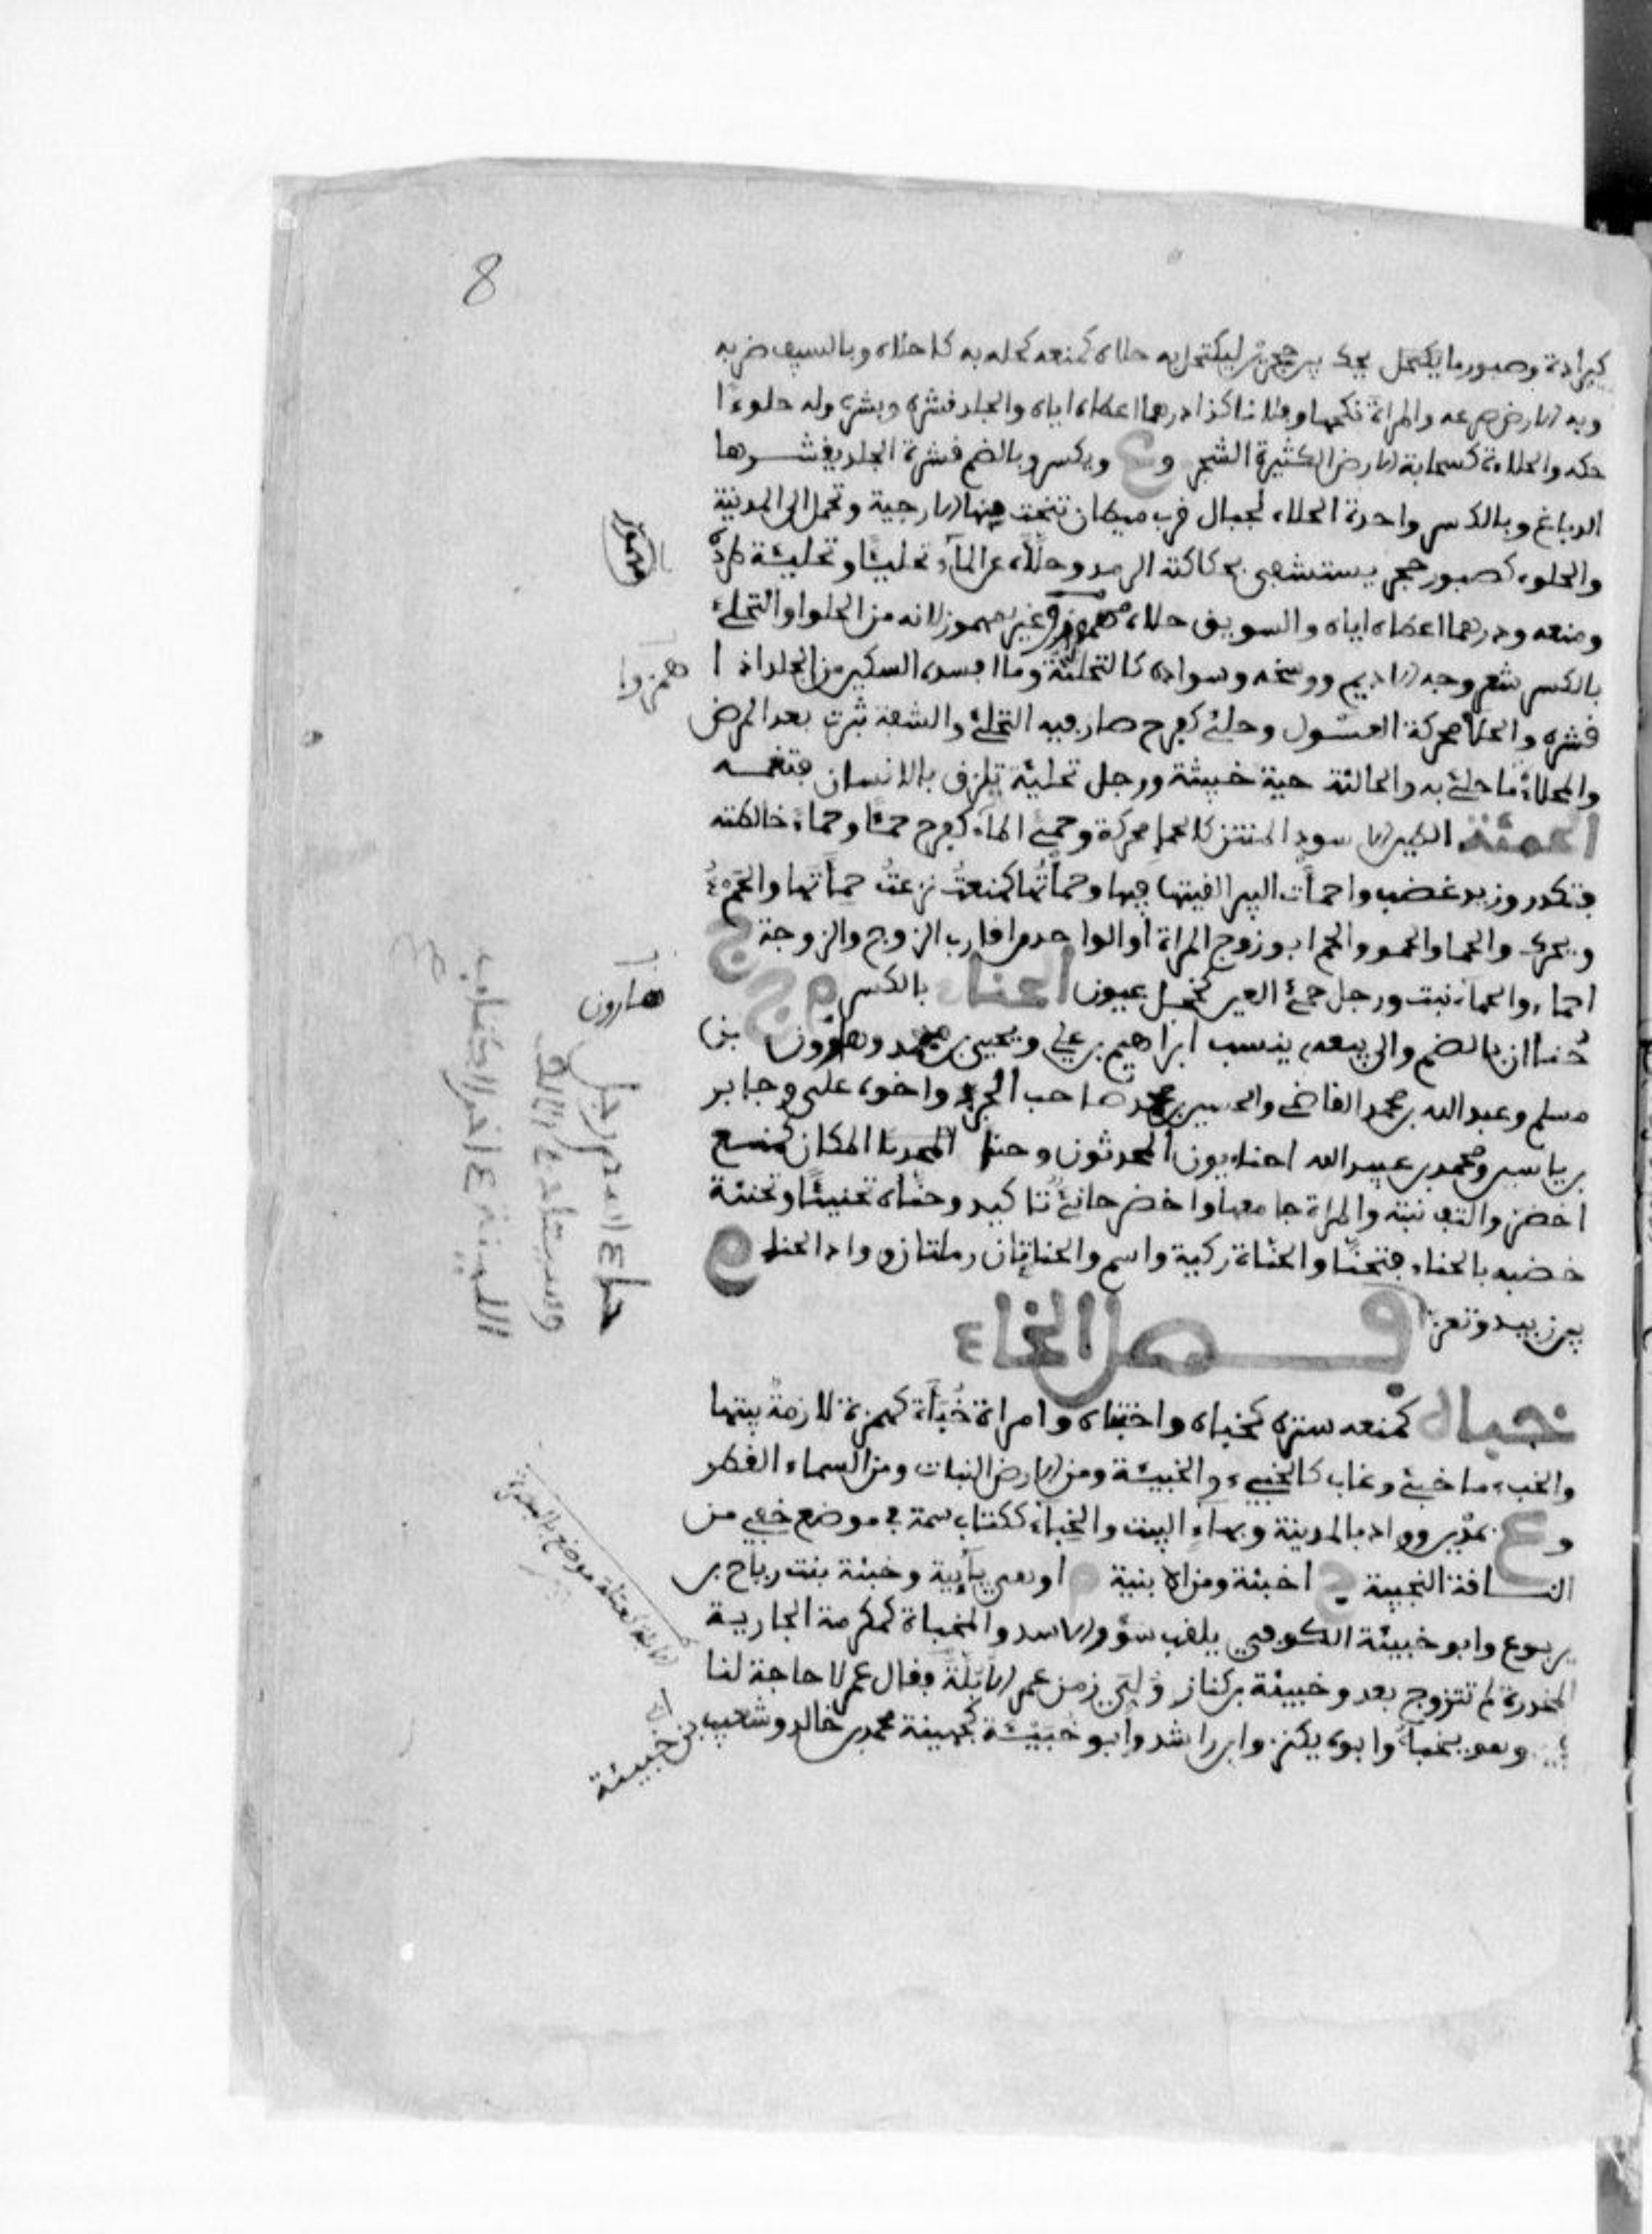 8
كبرادة وصبور ما يحك بين حجرين ليكتحل به حلاه كمنعه كحله به كاحلاه وبالسيف ضربه
وبه الارض صرعه والمراة نكحها وفلانا كذا درهما اعطاه اياه والجلد قشره وبشره وله حلوءا
حكه والحلاءة كسحابة الارض الكثيرة الشجر وع ويكسر وبالضم قشرة الجلد يقشرها
الدباغ وبالكسر واحدة الحلاء لجبال قرب ميطان تنحت منها الارحية وتحمل الى المدينة
والحلوء كصبور حجر يستشفى بحكاكته الرمد وحلأه عن الماء تحليئا وتحلئة طرده
ومنعه ودرهما اعطاه اياه والسويق حلاه همزوا غير مهموز لانه من الحلوا والتحلئ
بالكسر شعر وجه الاديم ووسخه وسواده كالتحلئة وما افسده السكين من الجلد اذا
قشره والحلأ محركة العقبول وحلئ كفرح صار فيه التحلئ والشفة بثرت بعد المرض
والمحلاة ما حلئ به والحالئة حية خبيثة ورجل تحلئة يلزق بالانسان فيغمه
الحمئة الطين الاسود المنتن كالحما محركة وحمئ الماء كفرح حمئا وحمأ خالطته
فتكدر وزيد غضب واحمأت البير القيتها فيها وحمأتها كمنعت نزعت حمأتها والحمء
ويحرك والحما والحمو والحم ابو زوج المراة او الواحد من اقارب الزوج والزوجة ج
احماء والحمأة نبت ورجل حمئ العين كخجل عيون الحناء بالكسر م ج
حُنان بالضم والى بيعه ينسب ابراهيم بن علي ويحيى بن محمد وهارون بن
مسلم وعبدالله بن محمد القاضي والحسين بن محمد صاحب الجزء واخوه علي وجابر
بن ياسين ومحمد بن عبيد الله الحناءيون المحدثون وحنأ المكان كمنع
اخضر والتف نبته والمراة جامعها واخضر حانئ تاكيد وحنأه تحنيئا وتحنئة
خضبه بالحناء فتحنأ والحناءة ركية واسم والحناءتان رملتان ووادي الحناء م
بين زبيد وتعز
فصل الخاء
خباه كمنعه ستره كخباه واختباه وامراة خُبأة كهمزة لازمة بيتها
والخبء ما خبئ وغاب كالخبئ والخبيئة ومن الارض النبات ومن السماء القطر
وع بمدين وواد بالمدينة وبهاء البنت والخباء ككتاب سمة في موضع خفي من
الناقة النجيبة ج اخبئة ومن الابنية م او هي يآئية وخبئة بنت رياح بن
يربوع وابو خبيئة الكوفي يلقب سؤر الاسد والمخباة كمكرمة الجارية
المخدرة لم تتزوج بعد وخبيئة بن كناز ولي زمن عمر الابلة فقال عمر لا حاجة لنا
فيه وهو يخبأ وابوه يكنز وابن راشد وابو خبيئة كجهينة محمد بن خالد وشعيب بن ابي خبيئة
همزوا
هارون
حناء اسم رجل
الابلة كعتلة موضع بالبصرة